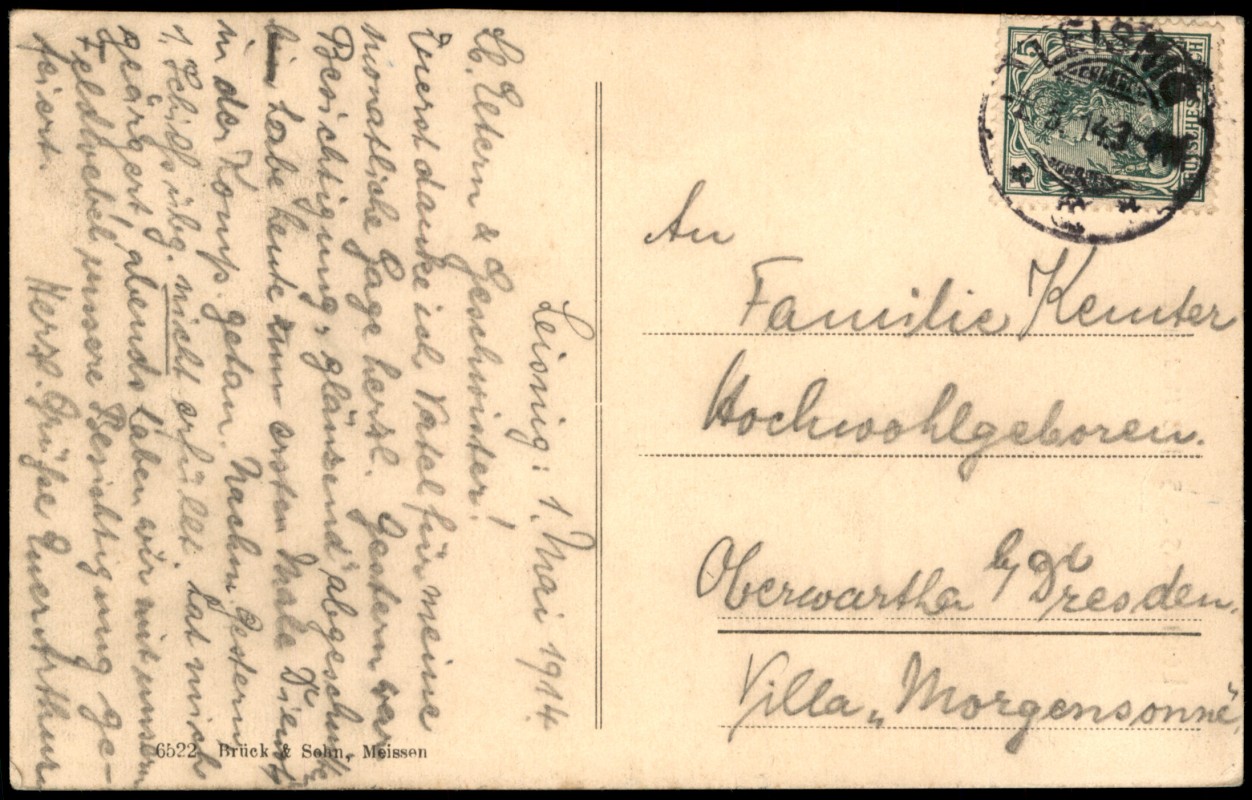 Leisnig: 1. Mai 1914.
Lb. Eltern & Geschwister!
Zuerst danke ich Vatel für meine
monatliche Gage herzl. Gestern war
Besichtigung, glänzend abgeschnitten
habe heute zum ersten Male Dienst
in der Komp. getan. Nachm. gestern
1. Schießübg. nicht erfüllt hat mich
geärgert, abends haben wir mit unserm
Feldwebel unsere Besichtigung ge-
feiert.
Herzl. Grüße Euer Arthur
6522 Brück & Sohn, Meissen
LEISNIG
An
Familie Kemter
Hochwohlgeboren.
Oberwartha b/ Dresden.
Villa „Morgensonne“